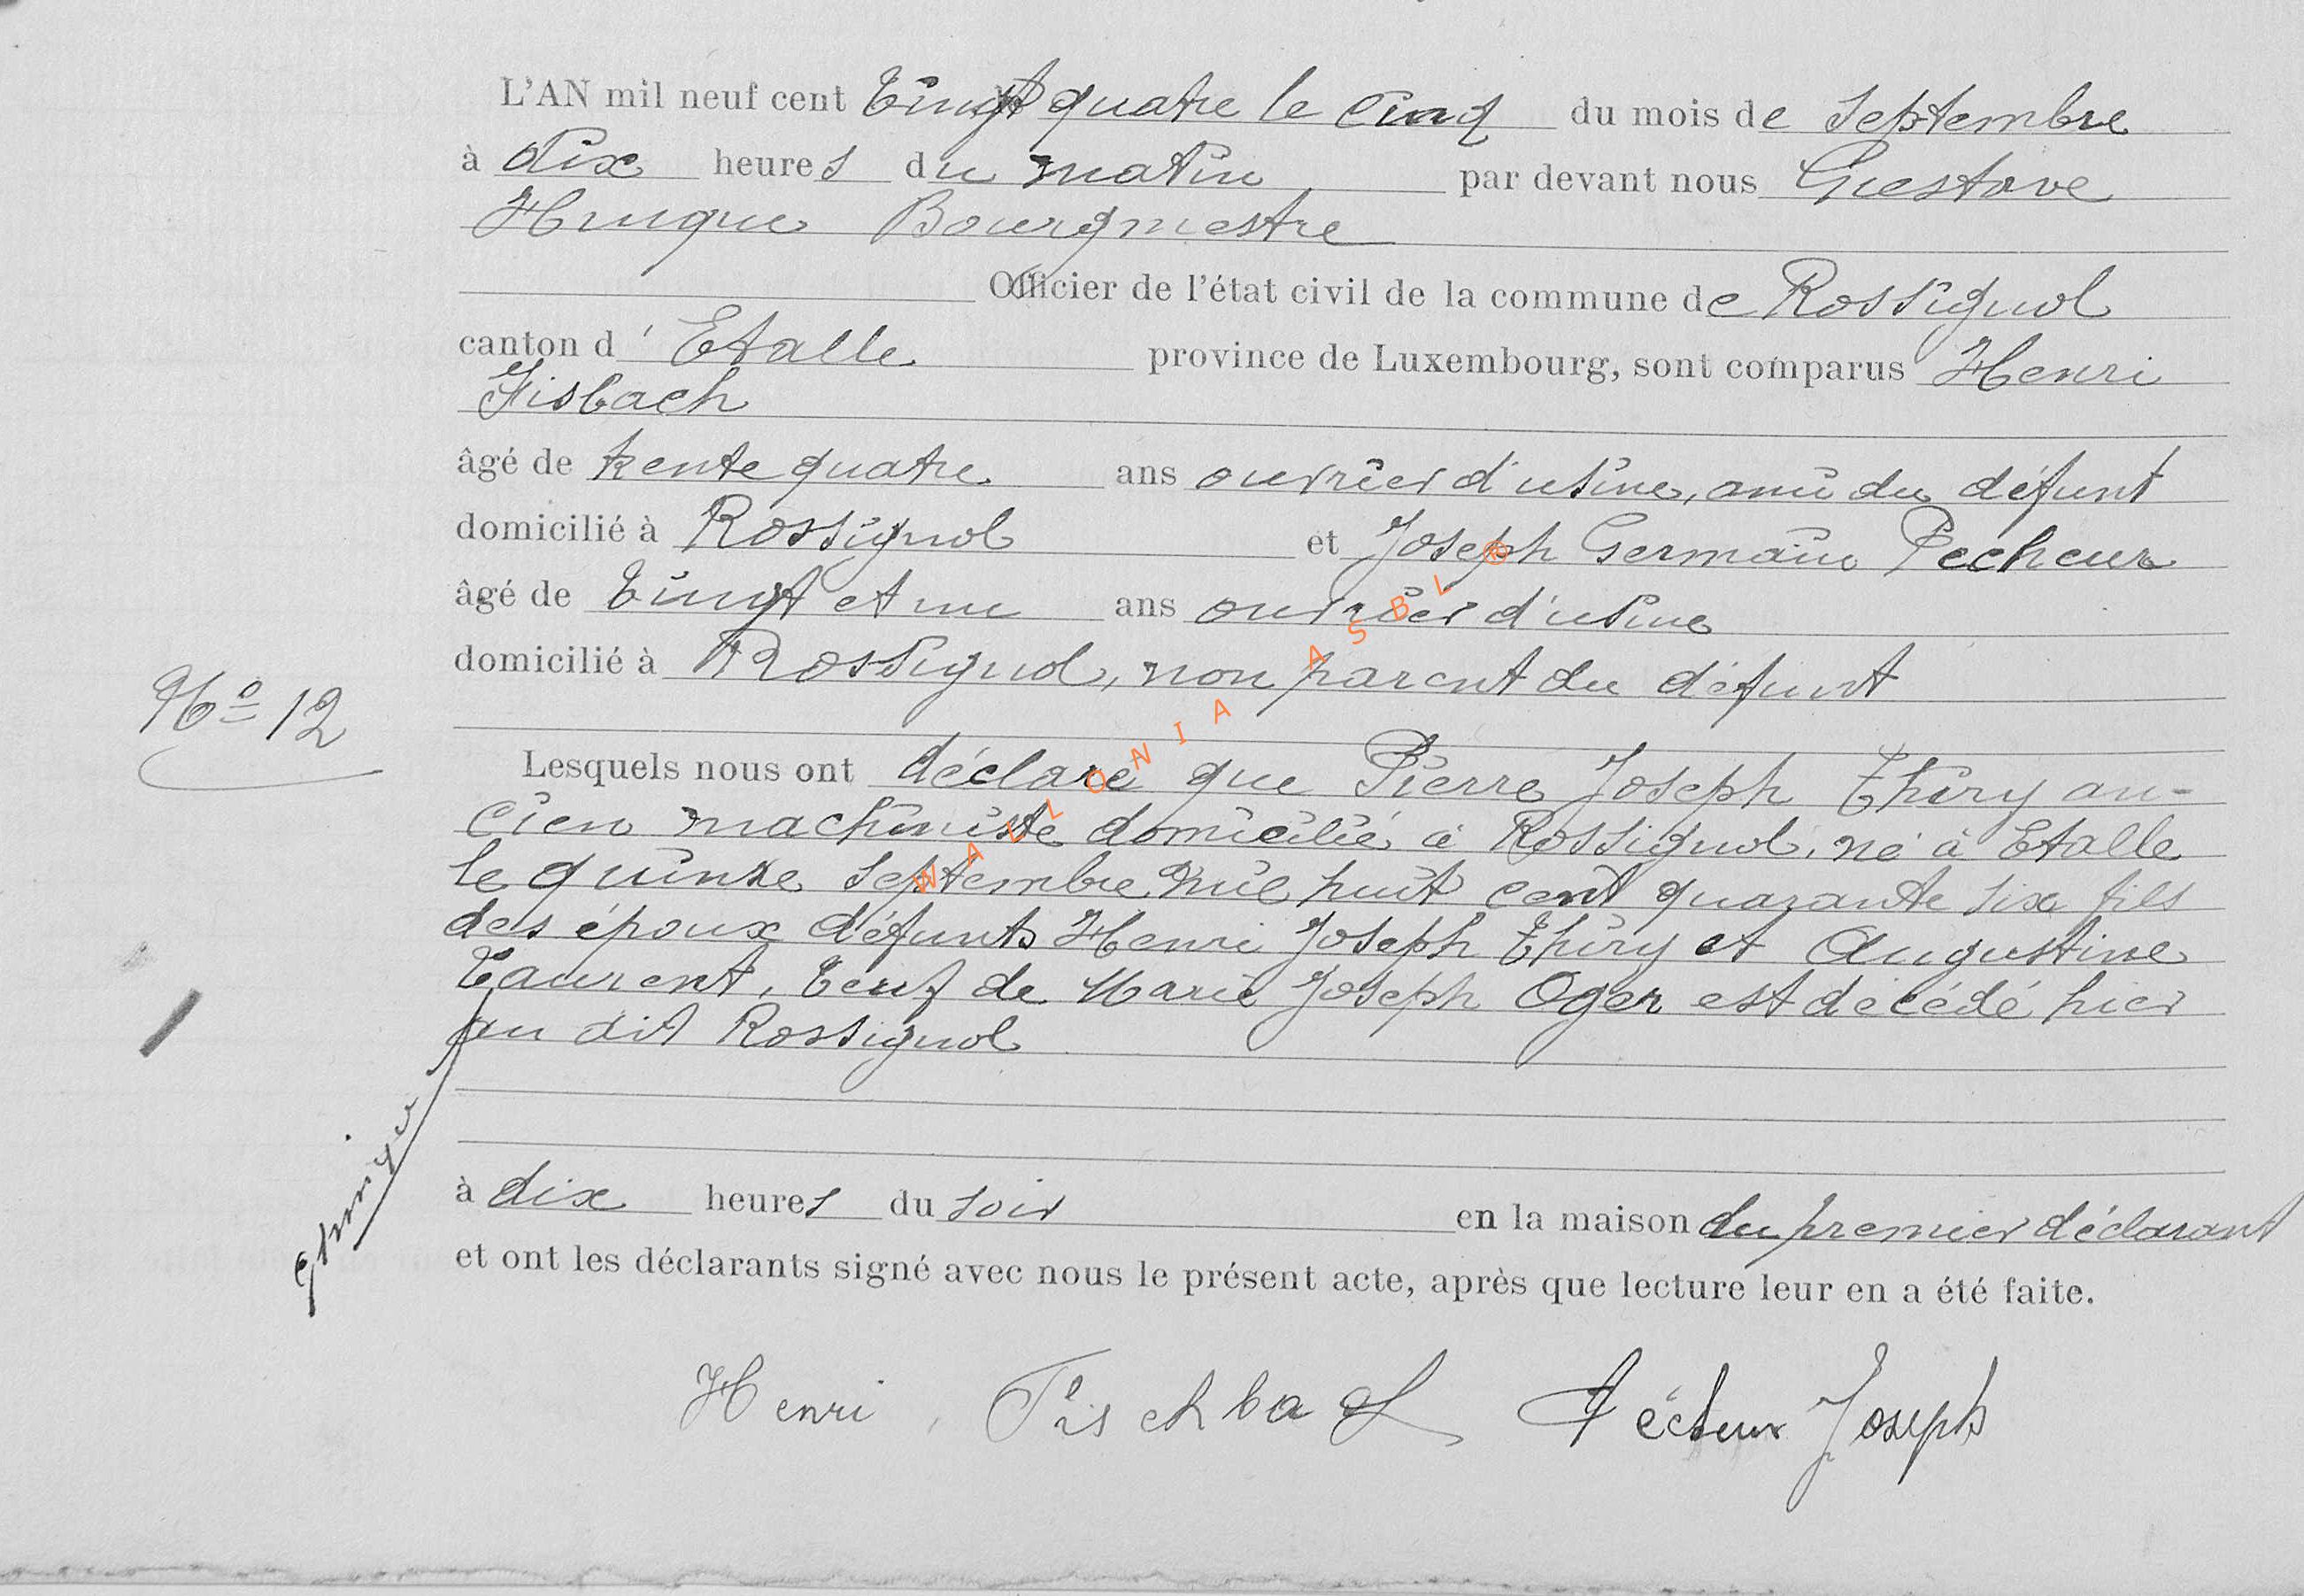 L'AN mil neuf cent vingt quatre le cinq du mois de Septembre
à dix heures du matin par devant nous Gustave
Hugue Bourgmestre
Officier de l'état civil de la commune de Rossignol
canton d'Etalle province de Luxembourg, sont comparus Henri
Fisbach
âgé de trente quatre ans ouvrier d'usine, ami du défunt
domicilié à Rossignol et Joseph Germain Pecheur
âgé de vingt et un ans ouvrier d'usine
domicilié à Rossignol, non parent du défunt
No 12
Lesquels nous ont déclaré que Pierre Joseph Thiry an-
cien machiniste domicilié à Rossignol, né à Etalle
le quinze Septembre mil huit cent quarante six fils
des époux défunts Henri Joseph Thiry et Augustine
Laurent, veuf de Marie Joseph Oger est décédé hier
au dit Rossignol
à dix heures du soir en la maison du premier déclarant
et ont les déclarants signé avec nous le présent acte, après que lecture leur en a été faite.
Henri Fischbach Pécheur Joseph
WALLONIA ASBL ®